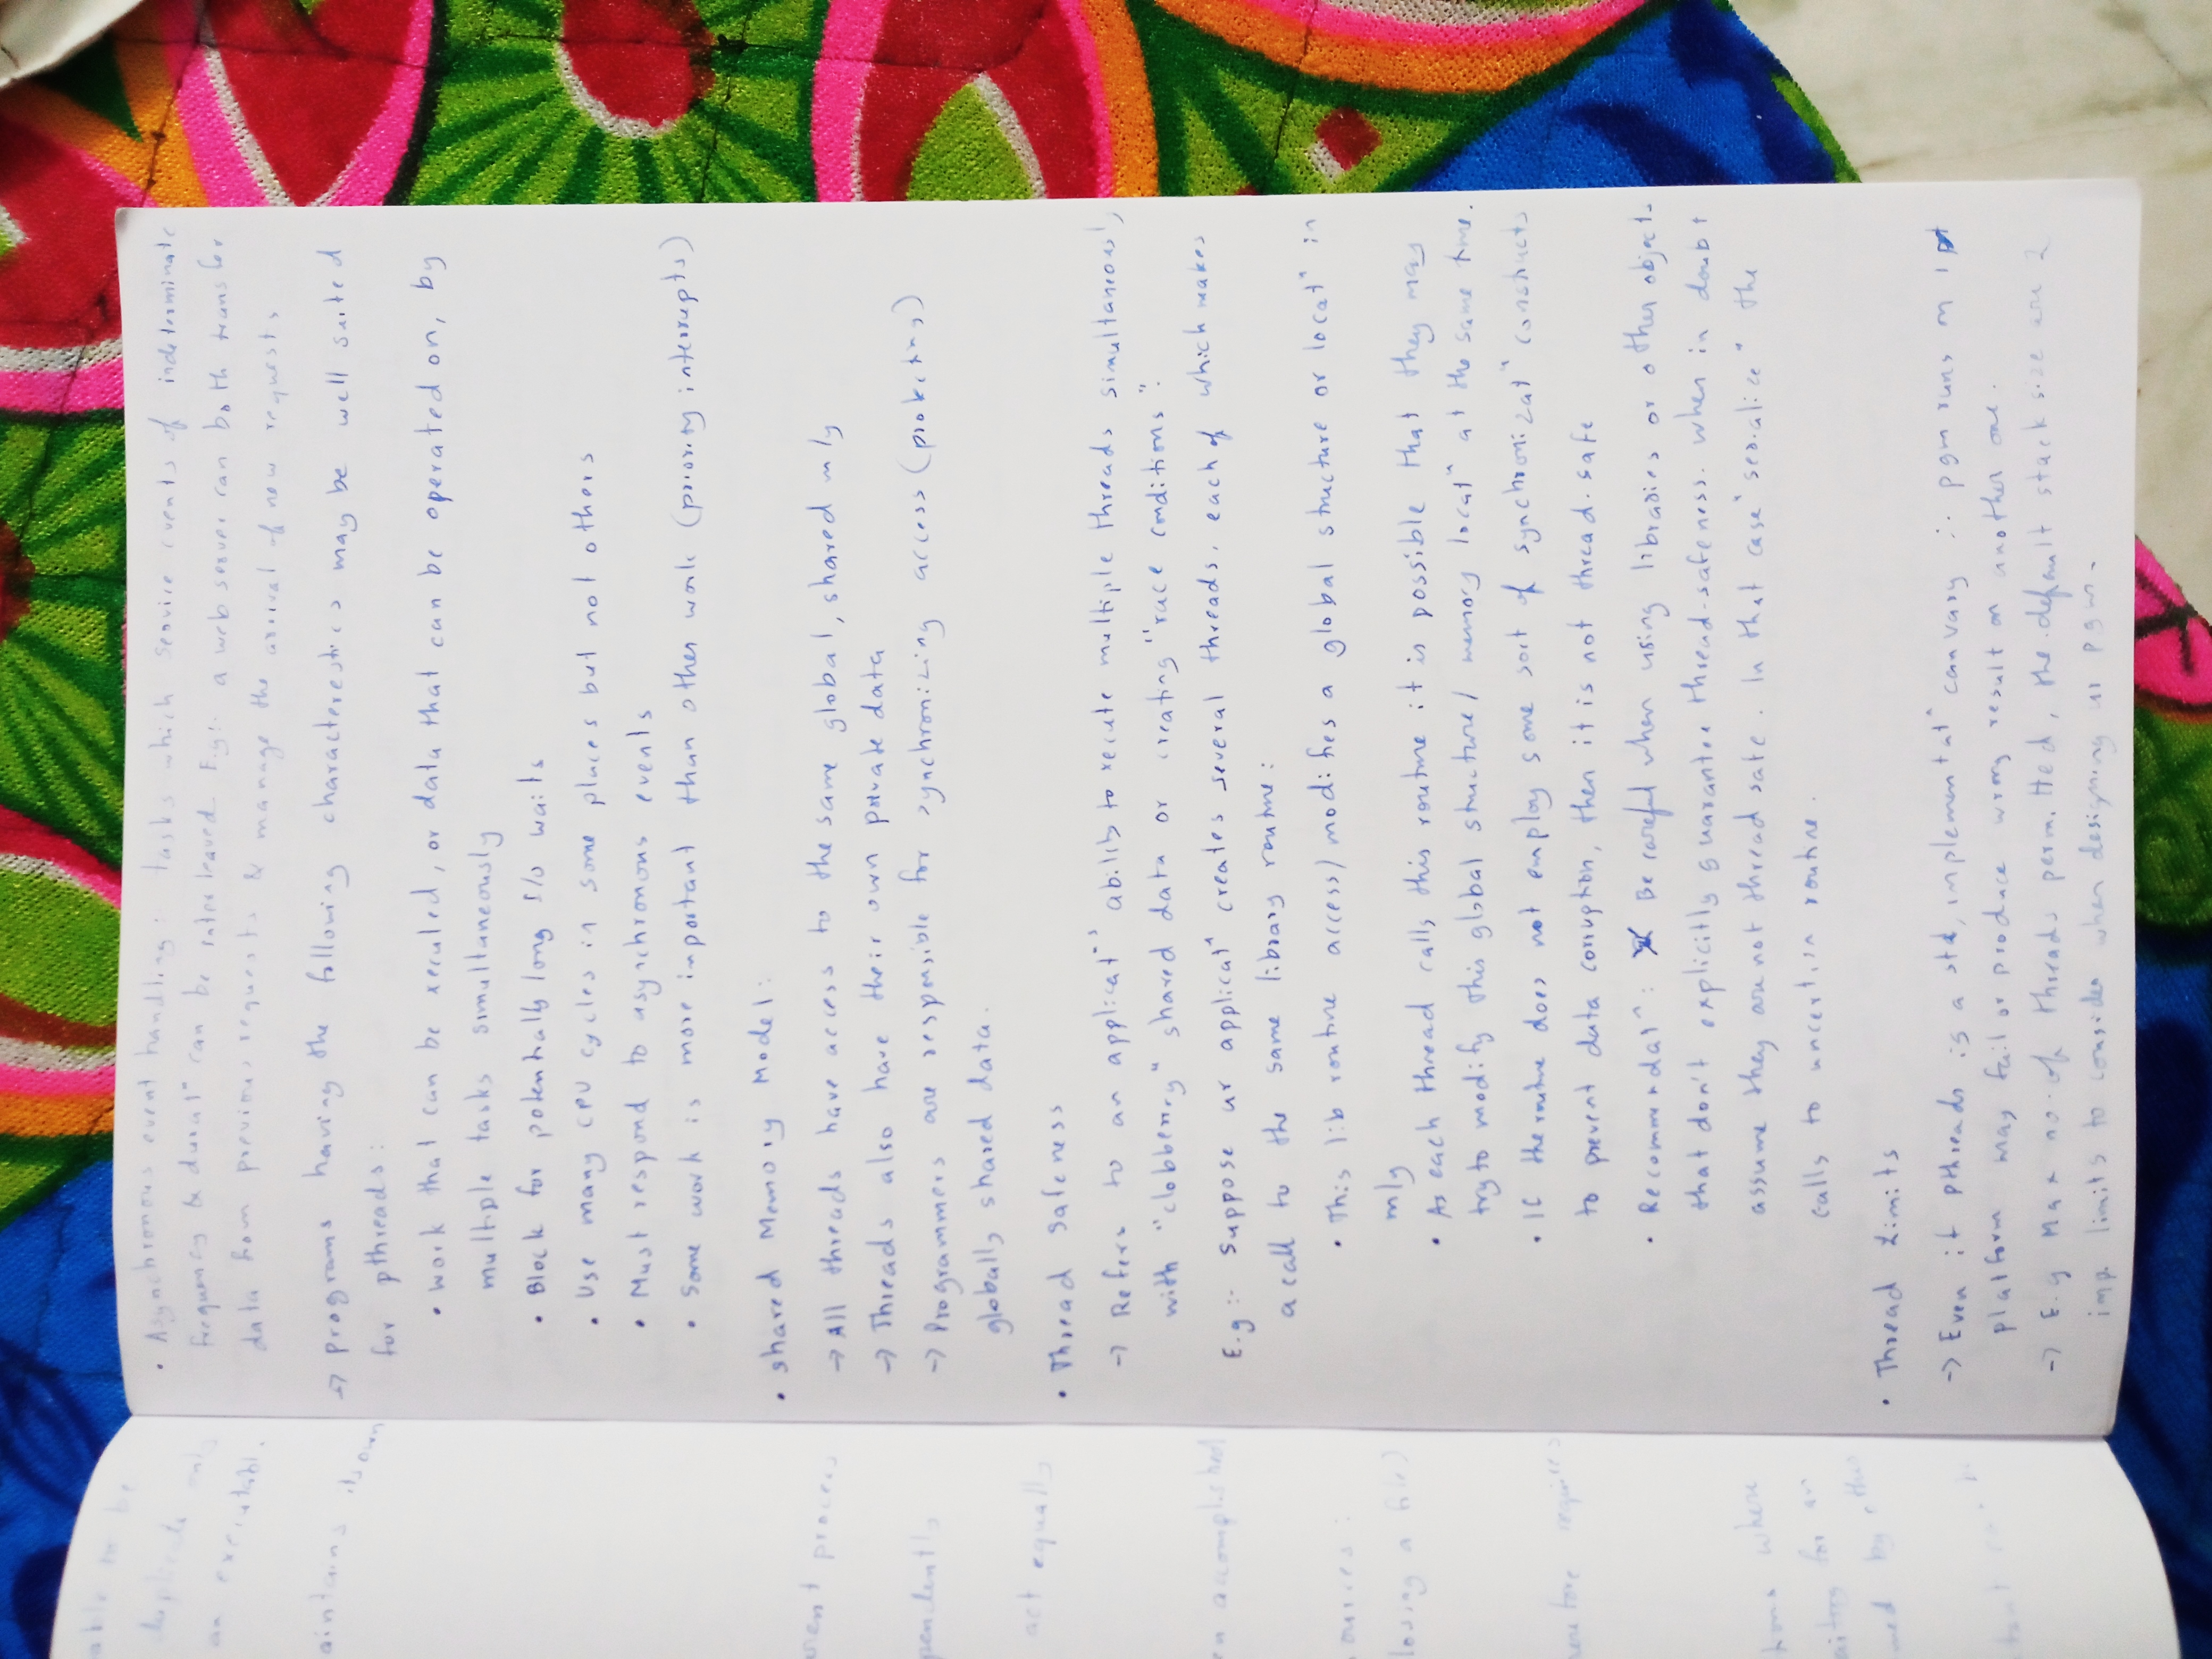 • Asynchronous event handling: tasks which service events of indeterminate
frequency & durat^n can be interleaved. E.g:- a web server can both transfer
data from previous requests & manage the arrival of new requests
→ programs having the following characterestics may be well suited
for pthreads:
• Work that can be xecuted, or data that can be operated on, by
multiple tasks simultaneously
• Block for potentially long I/O waits
• Use many CPU cycles in some places but not others
• Must respond to asynchronous events
• Some work is more important than other work (priority interrupts)
• Shared Memory Model:
→ All threads have access to the same global, shared m/y
→ Threads also have their own private data
→ Programmers are responsible for synchronizing access (protecting)
globally shared data.
• Thread Safeness
→ Refers to an applicat^n's ability to xecute multiple threads simultaneously
with "clobbering" shared data or creating "race conditions".
E.g:- Suppose ur applicat^n creates several threads, each of which makes
a call to the same library routine:
• This lib routine access/modifies a global structure or locat^n in
m/y
• As each thread calls this routine it is possible that they may
try to modify this global structure/memory locat^n at the same time.
• If the routine does not employ some sort of synchronizat^n constructs
to prevent data corruption, then it is not thread.safe
• Recommendat^n: Be careful when using libraries or other objects
that don't explicitly guarantee thread-safeness. When in doubt
assume they are not thread safe. In that case "serialice" the
calls to uncertain routine.
• Thread Limits
→ Even if pthreads is a std, implementat^n can vary ∴ pgm runs on 1
platform may fail or produce wrong result on another one.
→ E.g Max no. of threads permitted, the default stack size are 2
imp. limits to consider when designing ur pgm.
able to be
duplicate only
an executable.
aintains its own
arent process
pendently
act equally
en accomplished
ources:
losing a file)
requires
where
for an
by